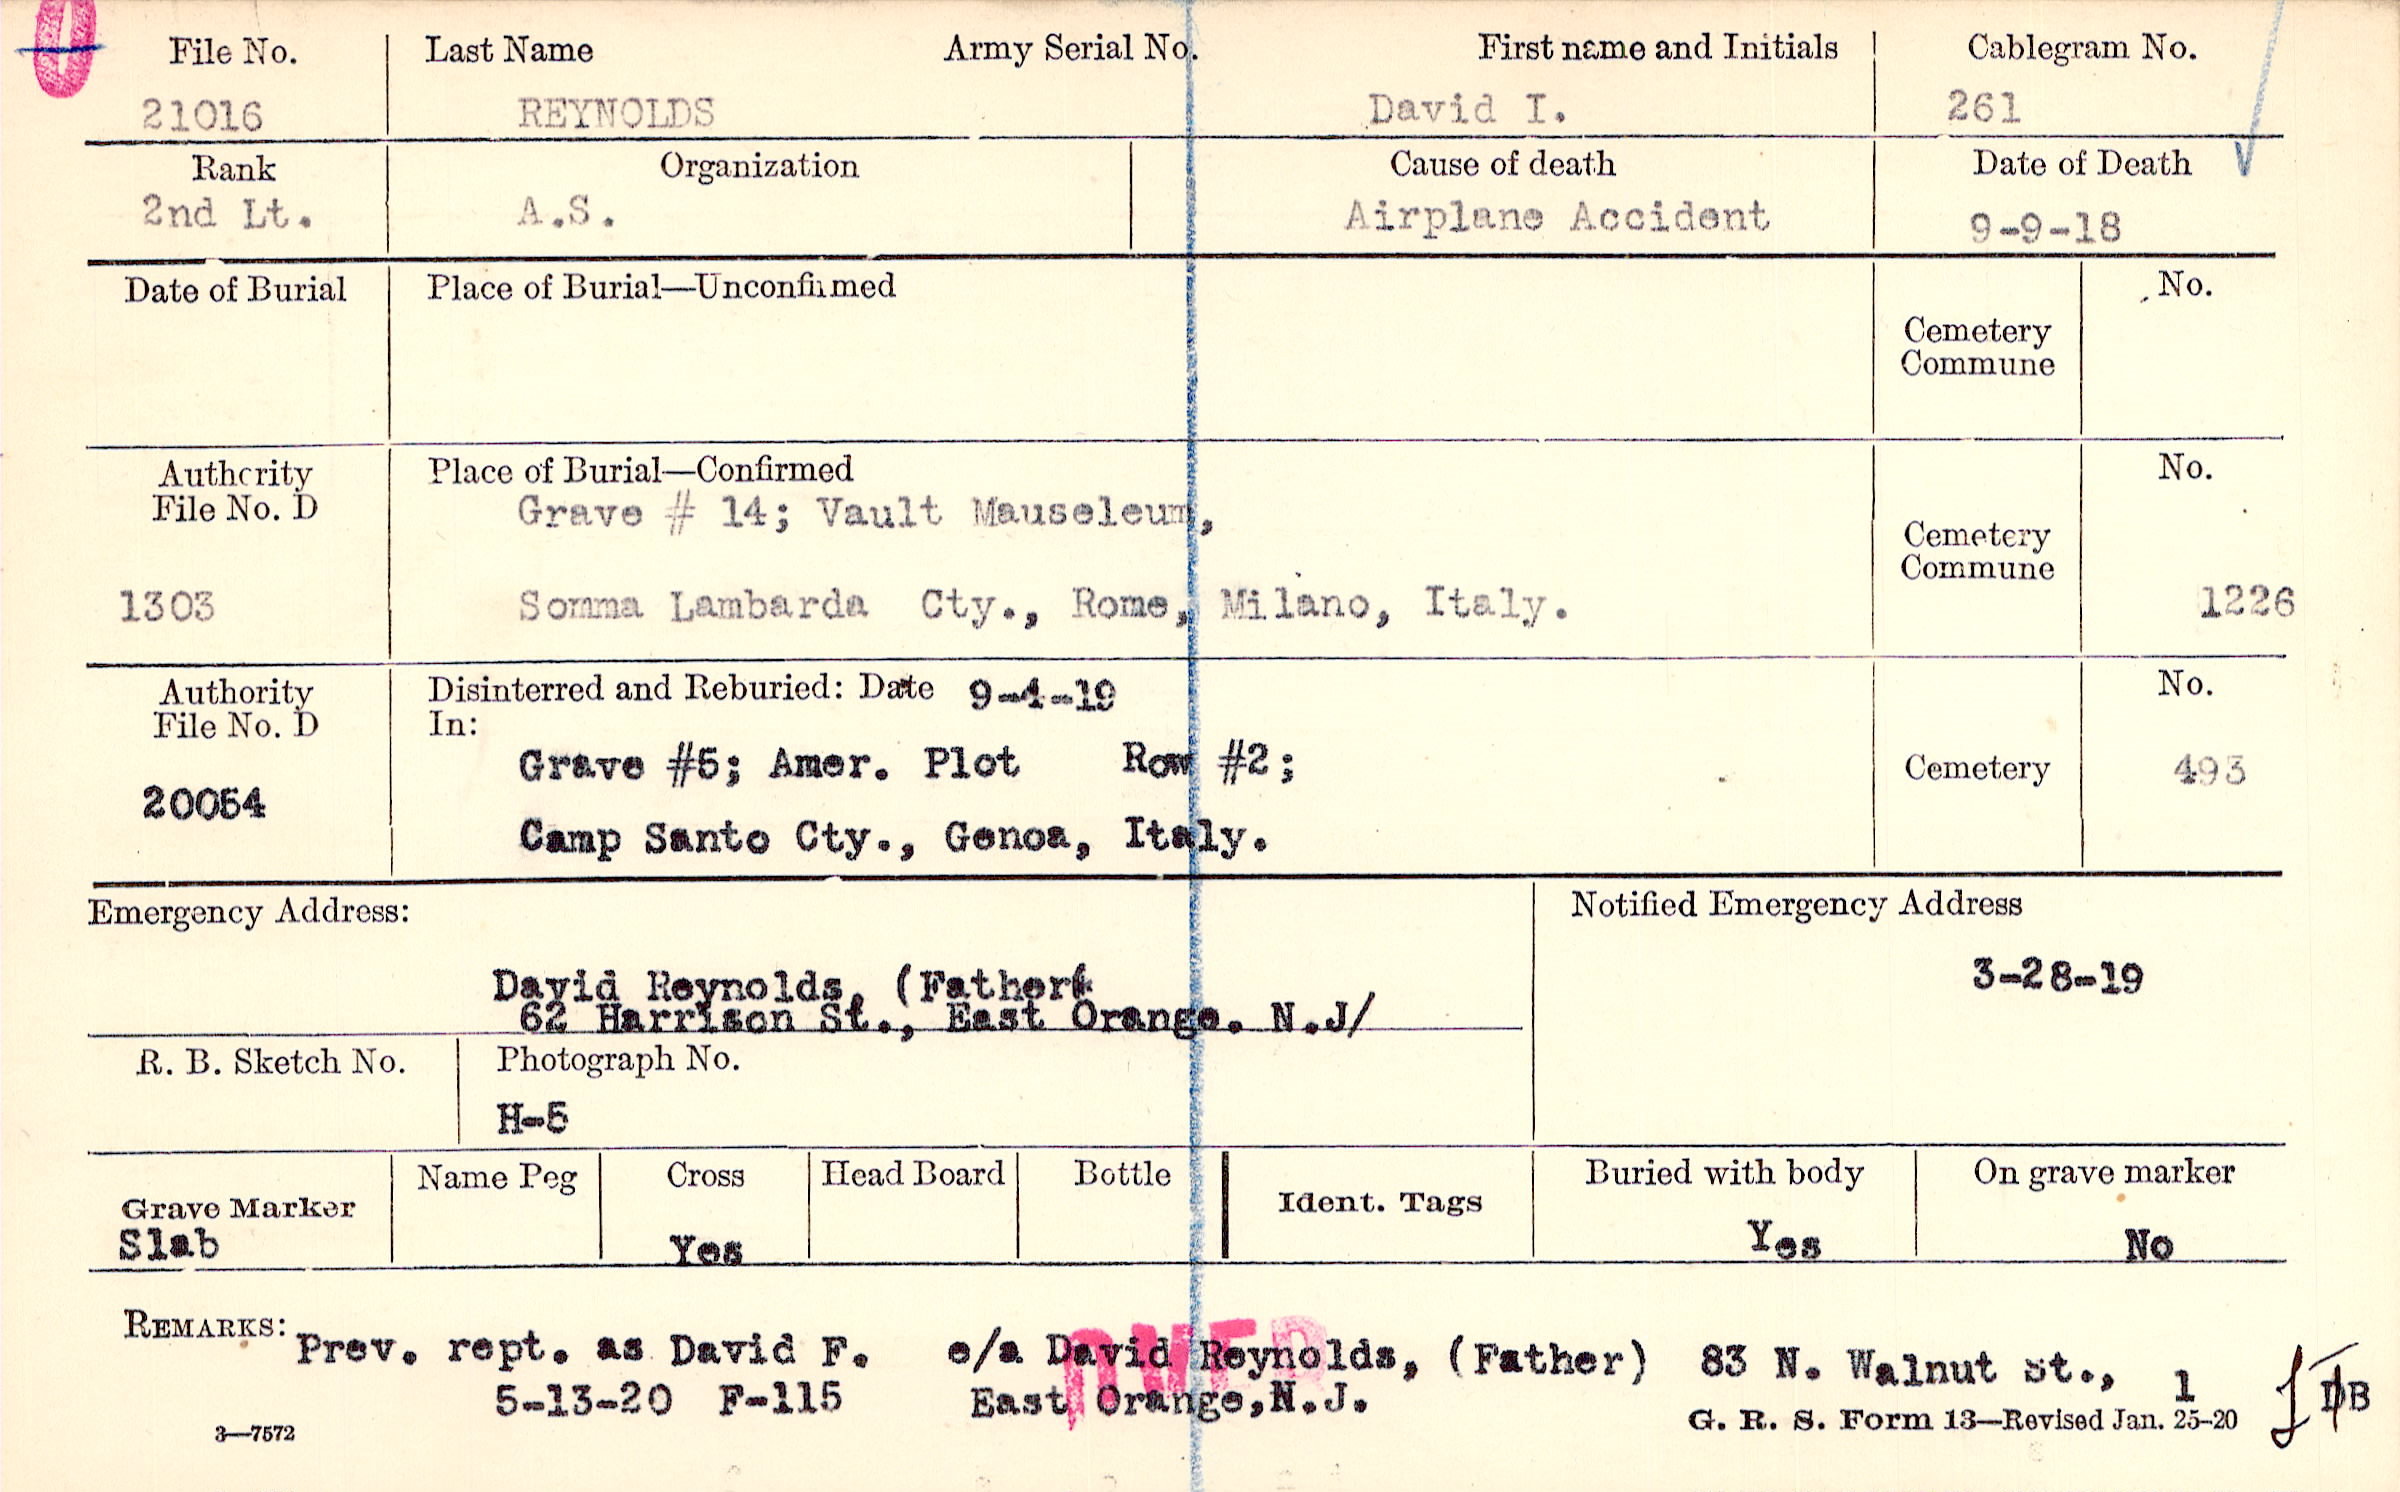 0
File No. Last Name Army Serial No. First name and Initials Cablegram No.
21016 REYNOLDS David I. 261
Rank Organization Cause of death Date of Death
2nd Lt. A.S. Airplane Accident 9-9-18
Date of Burial Place of Burial—Unconfirmed No.
Cemetery
Commune
Authority Place of Burial—Confirmed No.
File No. D Grave # 14; Vault Mauseleum,
Cemetery
Commune
1303 Somma Lambarda Cty., Rome, Milano, Italy. 1226
Authority Disinterred and Reburied: Date 9-4-19 No.
File No. D In:
Grave #5; Amer. Plot Row #2; Cemetery 493
20054
Camp Santo Cty., Genoa, Italy.
Emergency Address: Notified Emergency Address
David Reynolds, (Father( 3-28-19
62 Harrison St., East Orange. N.J/
R. B. Sketch No. Photograph No.
H-5
Grave Marker Name Peg Cross Head Board Bottle Ident. Tags Buried with body On grave marker
Slab Yes Yes No
REMARKS: Prev. rept. as David F. e/a David Reynolds, (Father) 83 N. Walnut St.,
OVER
5-13-20 F-115 East Orange,N.J. 1
DB
3—7572 G. R. S. Form 13—Revised Jan. 25-20